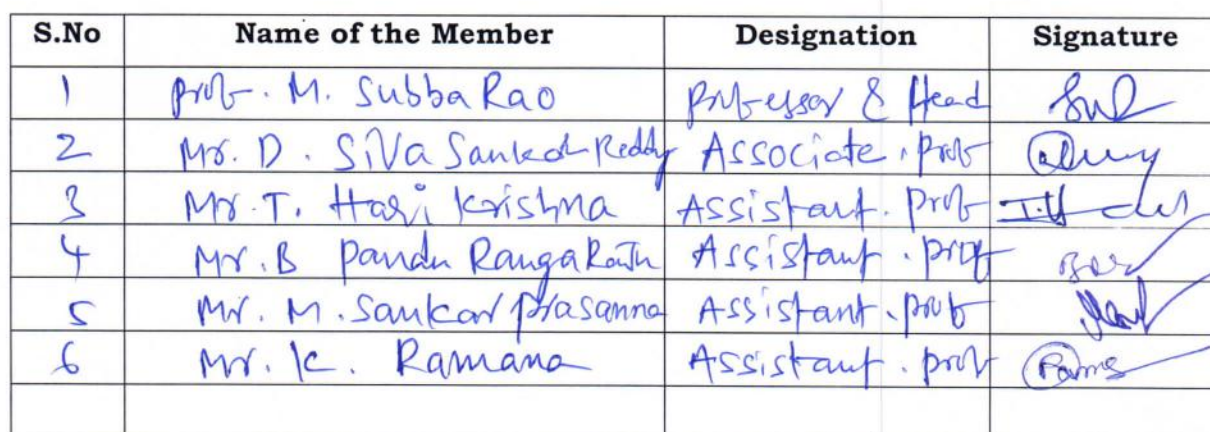 S.No Name of the Member Designation Signature
1 Prof. M. Subba Rao Professor & Head
2 Mr. D. Siva Sankar Reddy Associate. Prof
3 Mr. T. Hari Krishna Assistant. Prof
4 Mr. B Pandu Ranga Raju Assistant. prof
5 Mr. M. Sankar Prasanna Assistant. prof
6 Mr. K. Ramana Assistant. prof